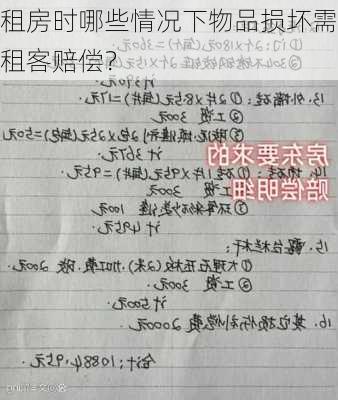 租房时哪些情况下物品损坏需
租客赔偿?
计390元
13. 外墙砖: ① 2片×8.5元(每片)=17元
② 工资 300元
填缝剂 2包×25元(每包)=50元
计367元
房东要求的
14. 墙砖: ① 1片×95元(每片)=95元
② 工资 300元
赔偿明细
100元
计495元
15. 露台栏杆:
① 大理石压板(2米), 加工费, 胶 200元
② 工资 300元
计500元
16. 其它损伤补偿费 2000元
合计: 10884.95元